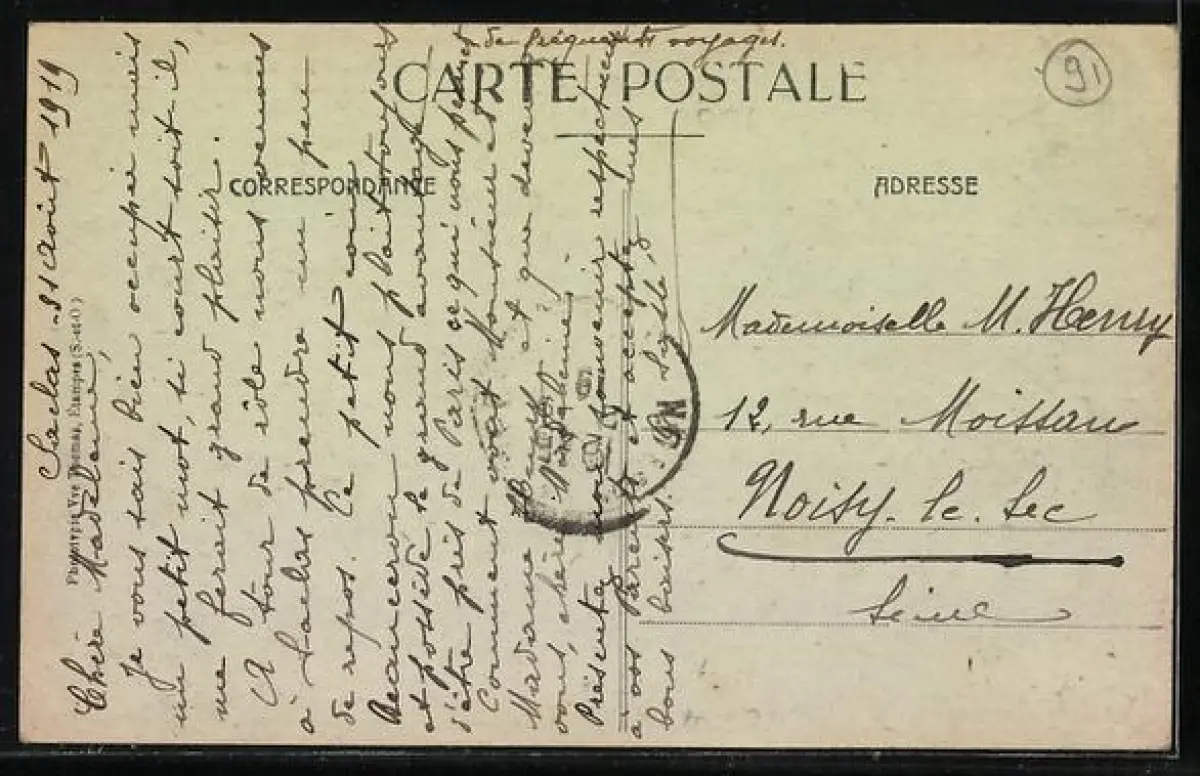 CARTE POSTALE
CORRESPONDANCE
ADRESSE
91
Saclas 31 Août 1919
Chère Madeleine,
Je vous sais bien occupée mais
un petit mot, si court soit-il,
me ferait grand plaisir.
A tour de rôle nous venons
à Saclas prendre un peu
de repos. Ce petit coin
Beauceron nous plait toujours
et possède le grand avantage
d'être près de Paris ce qui nous permet
de fréquents voyages.
Comment vont Monsieur et
Madame Henry et que devenez
vous, chère
Présentez mon souvenir respectueux
à vos Parents et acceptez mes
bons baisers.
Mademoiselle M. Henry
12, rue Moissan
Noisy-le-Sec
Seine
Phototypie Vve Thomas, Étampes (S.-et-O.)